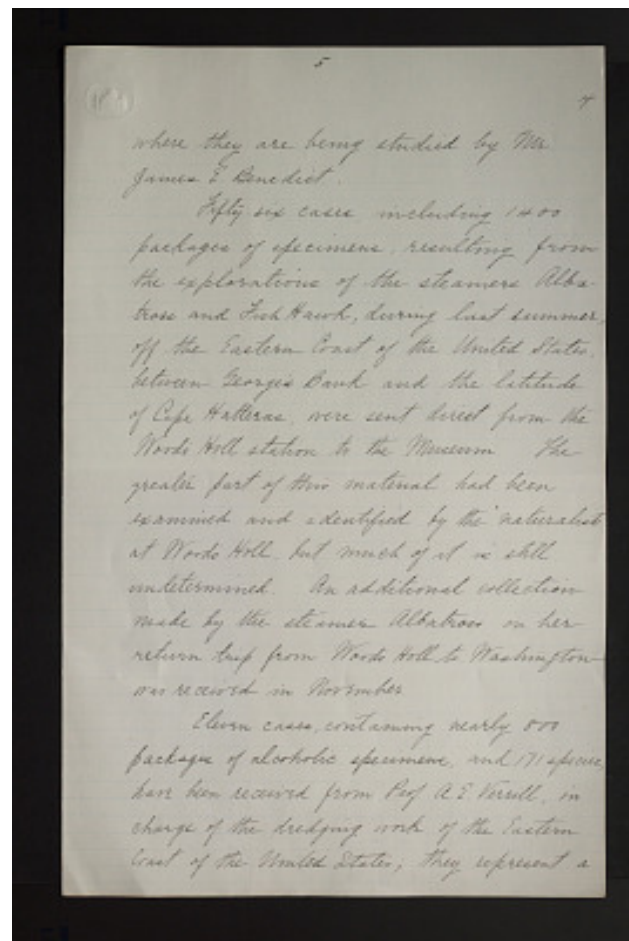 5
4
where they are being studied by Mr
James E Benedict.
Fifty six cases including 1400
packages of specimens, resulting from
the explorations of the steamers Alba-
tross and Fish Hawk, during last summer,
off the Eastern Coast of the United States,
between Georges Bank and the latitude
of Cape Hatteras, were sent direct from the
Woods Holl station to the Museum The
greater part of this material had been
examined and identified by the naturalists
at Woods Holl, but much of it is still
undetermined. An additional collection
made by the steamer Albatross on her
return trip from Woods Holl to Washington
was received in November
Eleven cases, containing nearly 800
packages of alcoholic specimens, and 171 species,
have been received from Prof A. E. Verrill, in
charge of the dredging work of the Eastern
Coast of the United States; they represent a